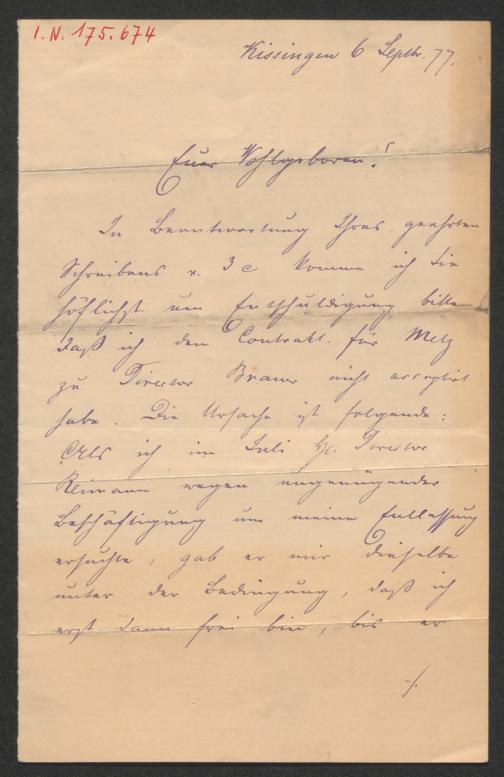 I.N. 175.674
Kissingen 6 Septbr. 77.
Euer Wohlgeboren!
In Beantwortung Ihres geehrten
Schreibens v. 3 c komme ich Sie
höflichst um Entschuldigung bitten
daß ich den Contrakt für Metz
zu Director Brauer nicht acceptirt
habe. Die Ursache ist folgende:
Als ich im Juli H. Director
Reimann wegen ungenügender
Beschäftigung um meine Entlassung
ersuchte, gab er mir dieselbe
unter der Bedingung, daß ich
erst dann frei bin, bis er
./.